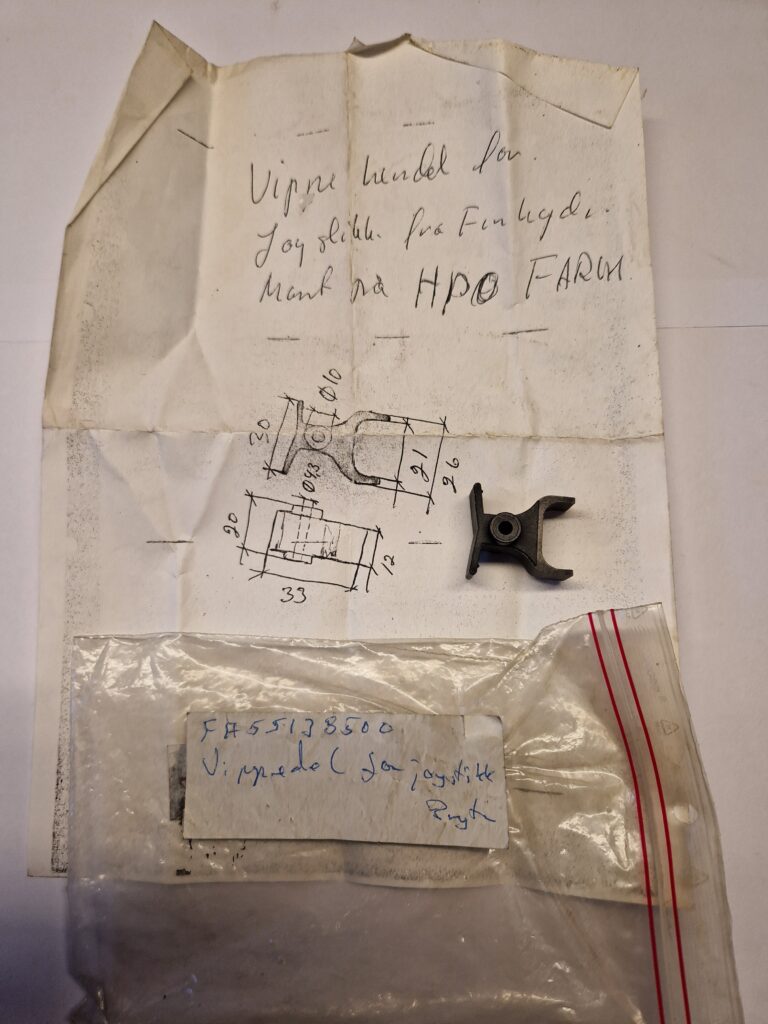 Vippe hendel for
Joystikk fra Finhydr.
Mont på HPO FARM
Ø10
30
Ø4,3
21
26
20
12
33
FA55138500
Vippedel for joystikk